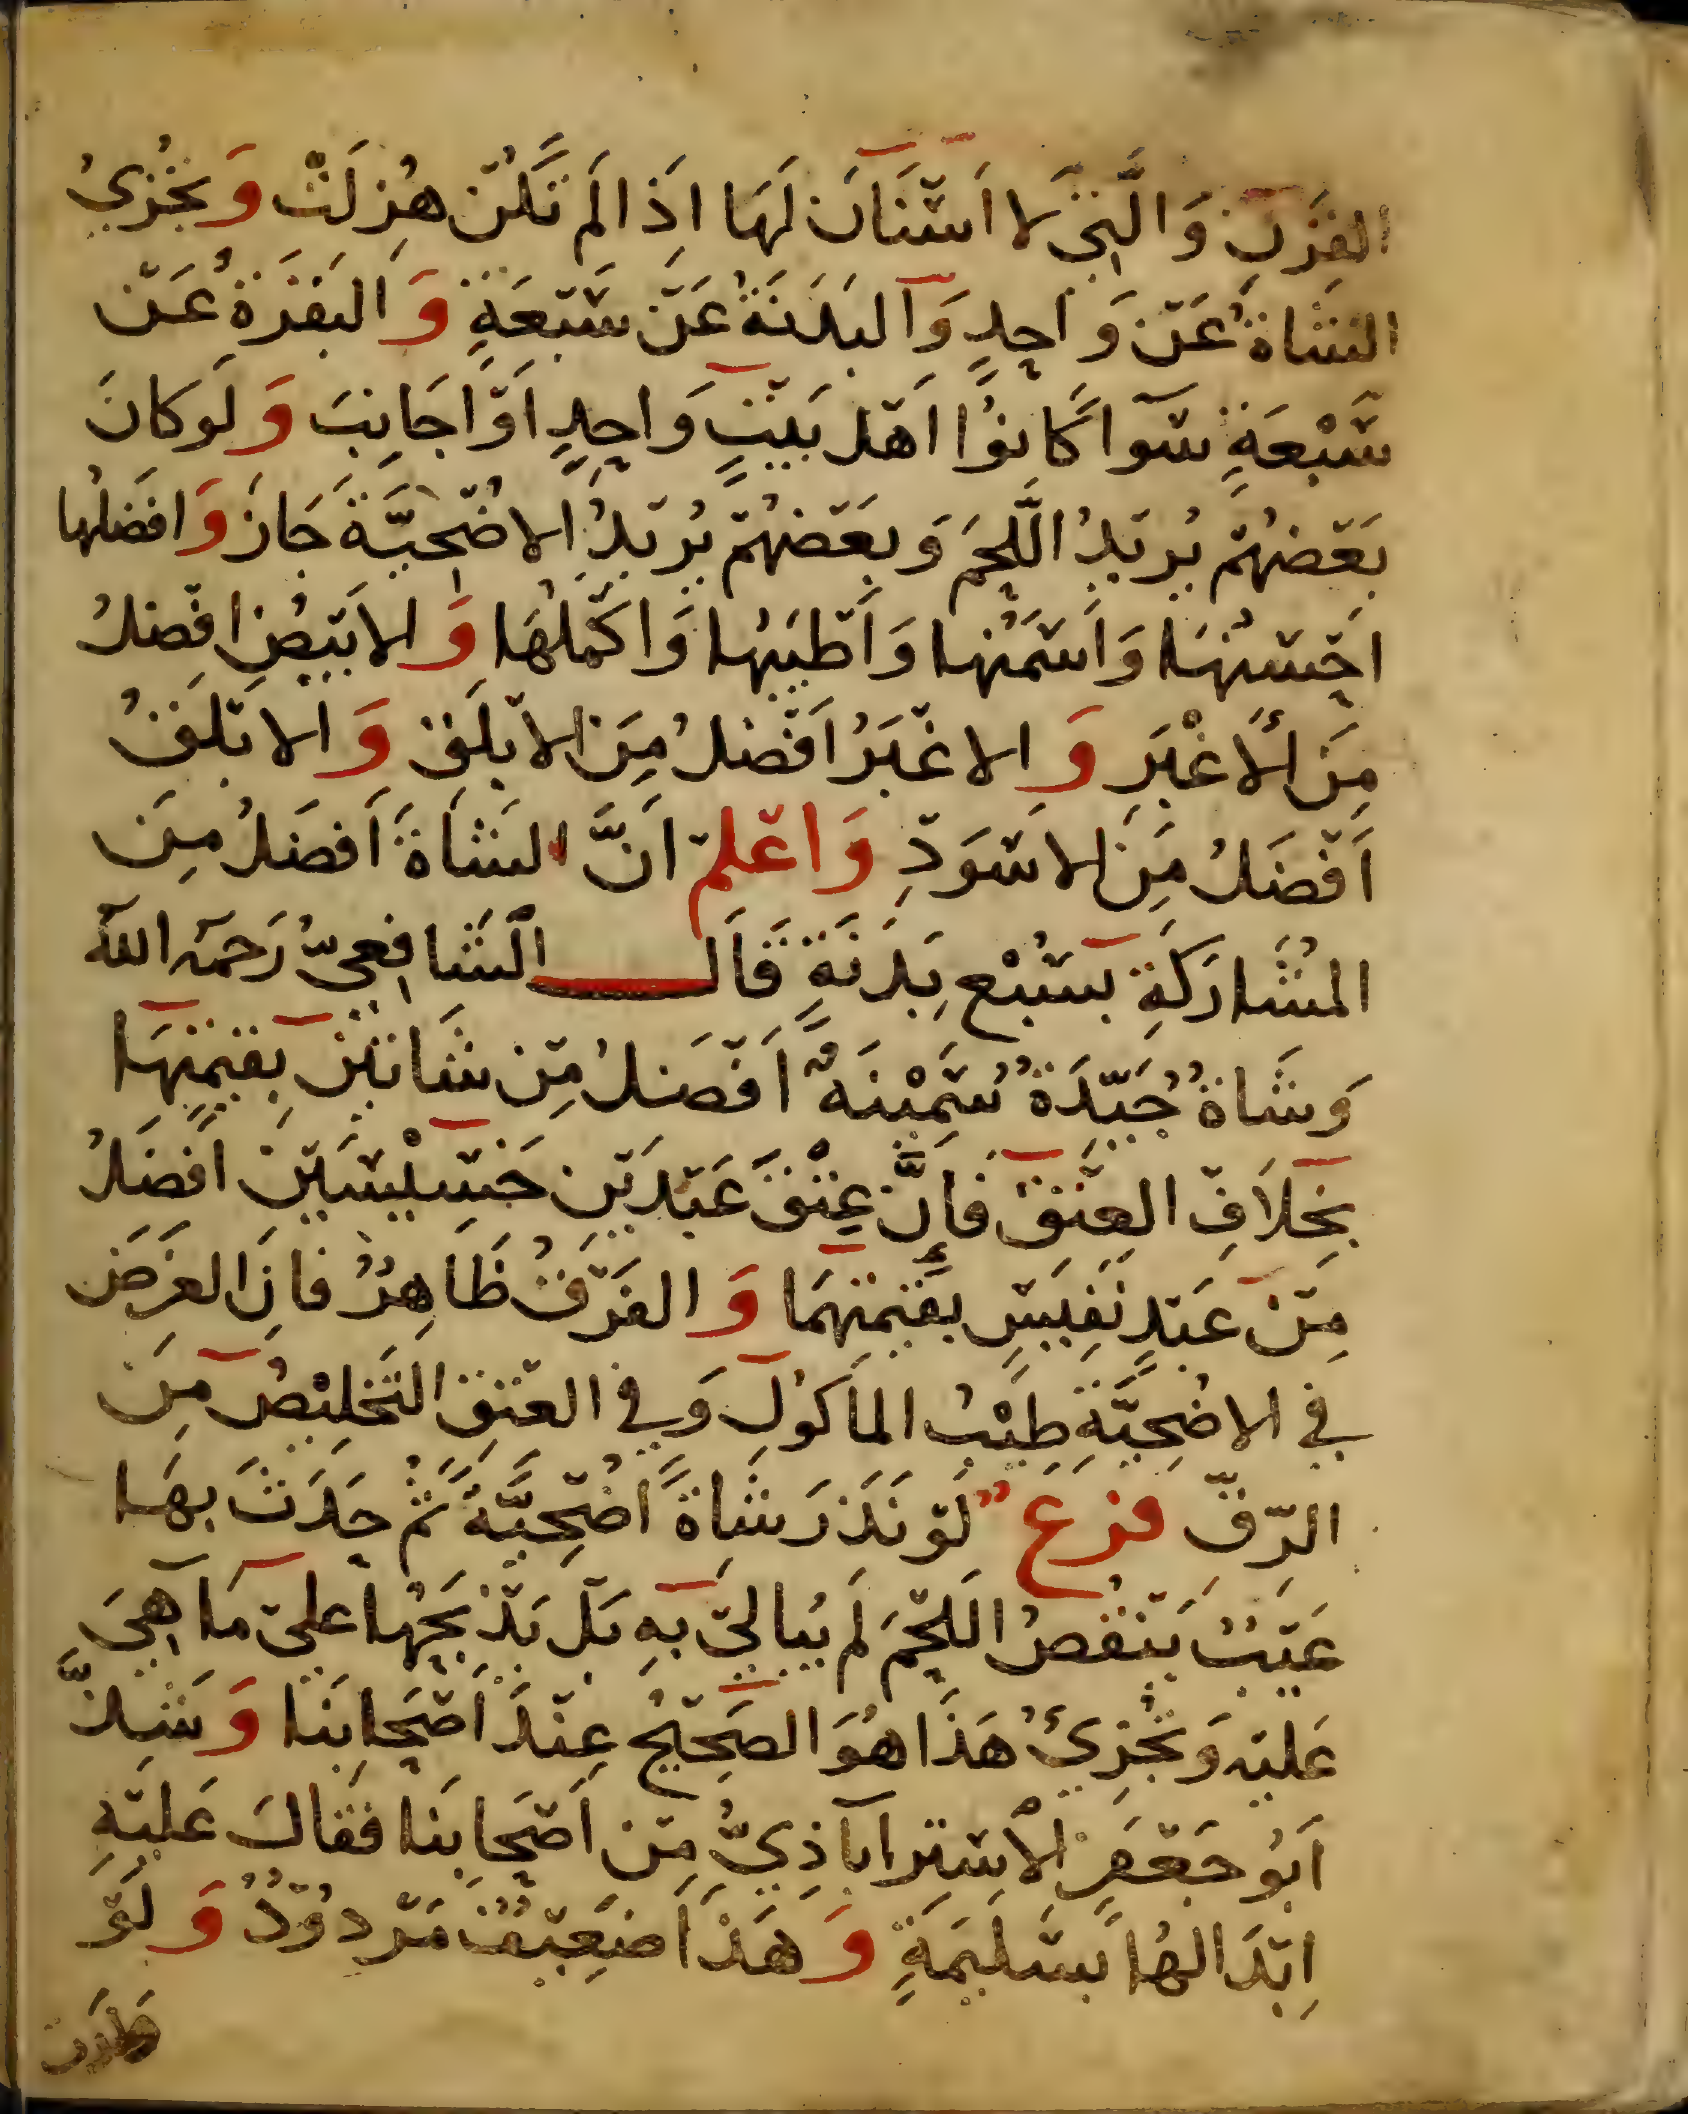 القرن وَالَّتِي لا اَسْنَانَ لَهَا اذَا لَم تَكُنْ هُزِلَتْ وَ يُجْزِيُ
الشَاةُ عَنْ وَاحِدٍ وَالبَدَنَةُ عَنْ سَبْعَةٍ وَ البَقَرَةُ عَنْ
سَبْعَةٍ سَوآ كَانوُا اَهْل بَيْتٍ وَاحِدٍ اَوْ اجَانِبَ وَ لَو كانَ
بَعْضهُمْ يُرِيْدُ اللَّحمَ وَبعَضهُمْ يُريْدُ الاضْحِيَّةَ جَازَ وَ افضَلُها
احْسَنُهَا وَاَسْمَنُها وَاَطْيَبُها وَاكْمَلُهَا وَ الابْيَضُ افْضلُ
مِنَ الأَغْبَرِ وَ الاغْبَرُ اَفْضلُ مِنَ الابْلَقِ وَ الابْلَقُ
اَفْضَلُ مِنَ الاسْوَدِ وَاعْلمْ انَّ الشَاةَ اَفضَلُ مِنَ
المُشَارَكَةِ بسَبُعِ بَدَنَةٍ قَالَ الشَافِعِيُّ رَحمَه اللهُ
وَشَاةُ جَيّدَةُ سَمْينَةٌ اَفْضَلُ مِنْ شَاتَيْنِ بِقيْمِتهَا
بِخِلَافِ العِتْقِ فَاِنَّ عِتْقَ عَبْدَيْنِ خَسِيْسَيْنِ افضَلُ
مِنْ عَبْدٍ نَفِيْسٍ بِقيْمتهِمَا وَ الفَرْقُ ظَاهِرُ فانِ الغرَضَ
في الاضحِيَّةِ طِيْبُ المأكُولِ وَفي العْتِقِ التَخلِيْصُ مِنَ
الرِّقِّ فرَعُ لَوْ نَذَرَ شَاةً اضْحِيَّةً ثُمّ حَدَثَ بِهَا
عَيْبُ يَنْقُصُ اللَحْمَ لَم يُبالي بهِ بَلْ يَذْبَحُها عَلىْ مَا هِيَ
عَليْه وَتُجْزِيُ هَذَا هُوَ الصَحِيْحُ عِنْدَ اَصْحابِنَا وَ شَذَّ
اَبُو جَعْفَرِ الاِسْتِرابآذِيُّ مِنْ اَصْحَابِنَا فَقَالَ عَليْهِ
اِبْدَالهُا بسَلِيْمَةٍ وَ هَذَا ضَعِيْفُ مَرْدوُدُ وَ لَوْ